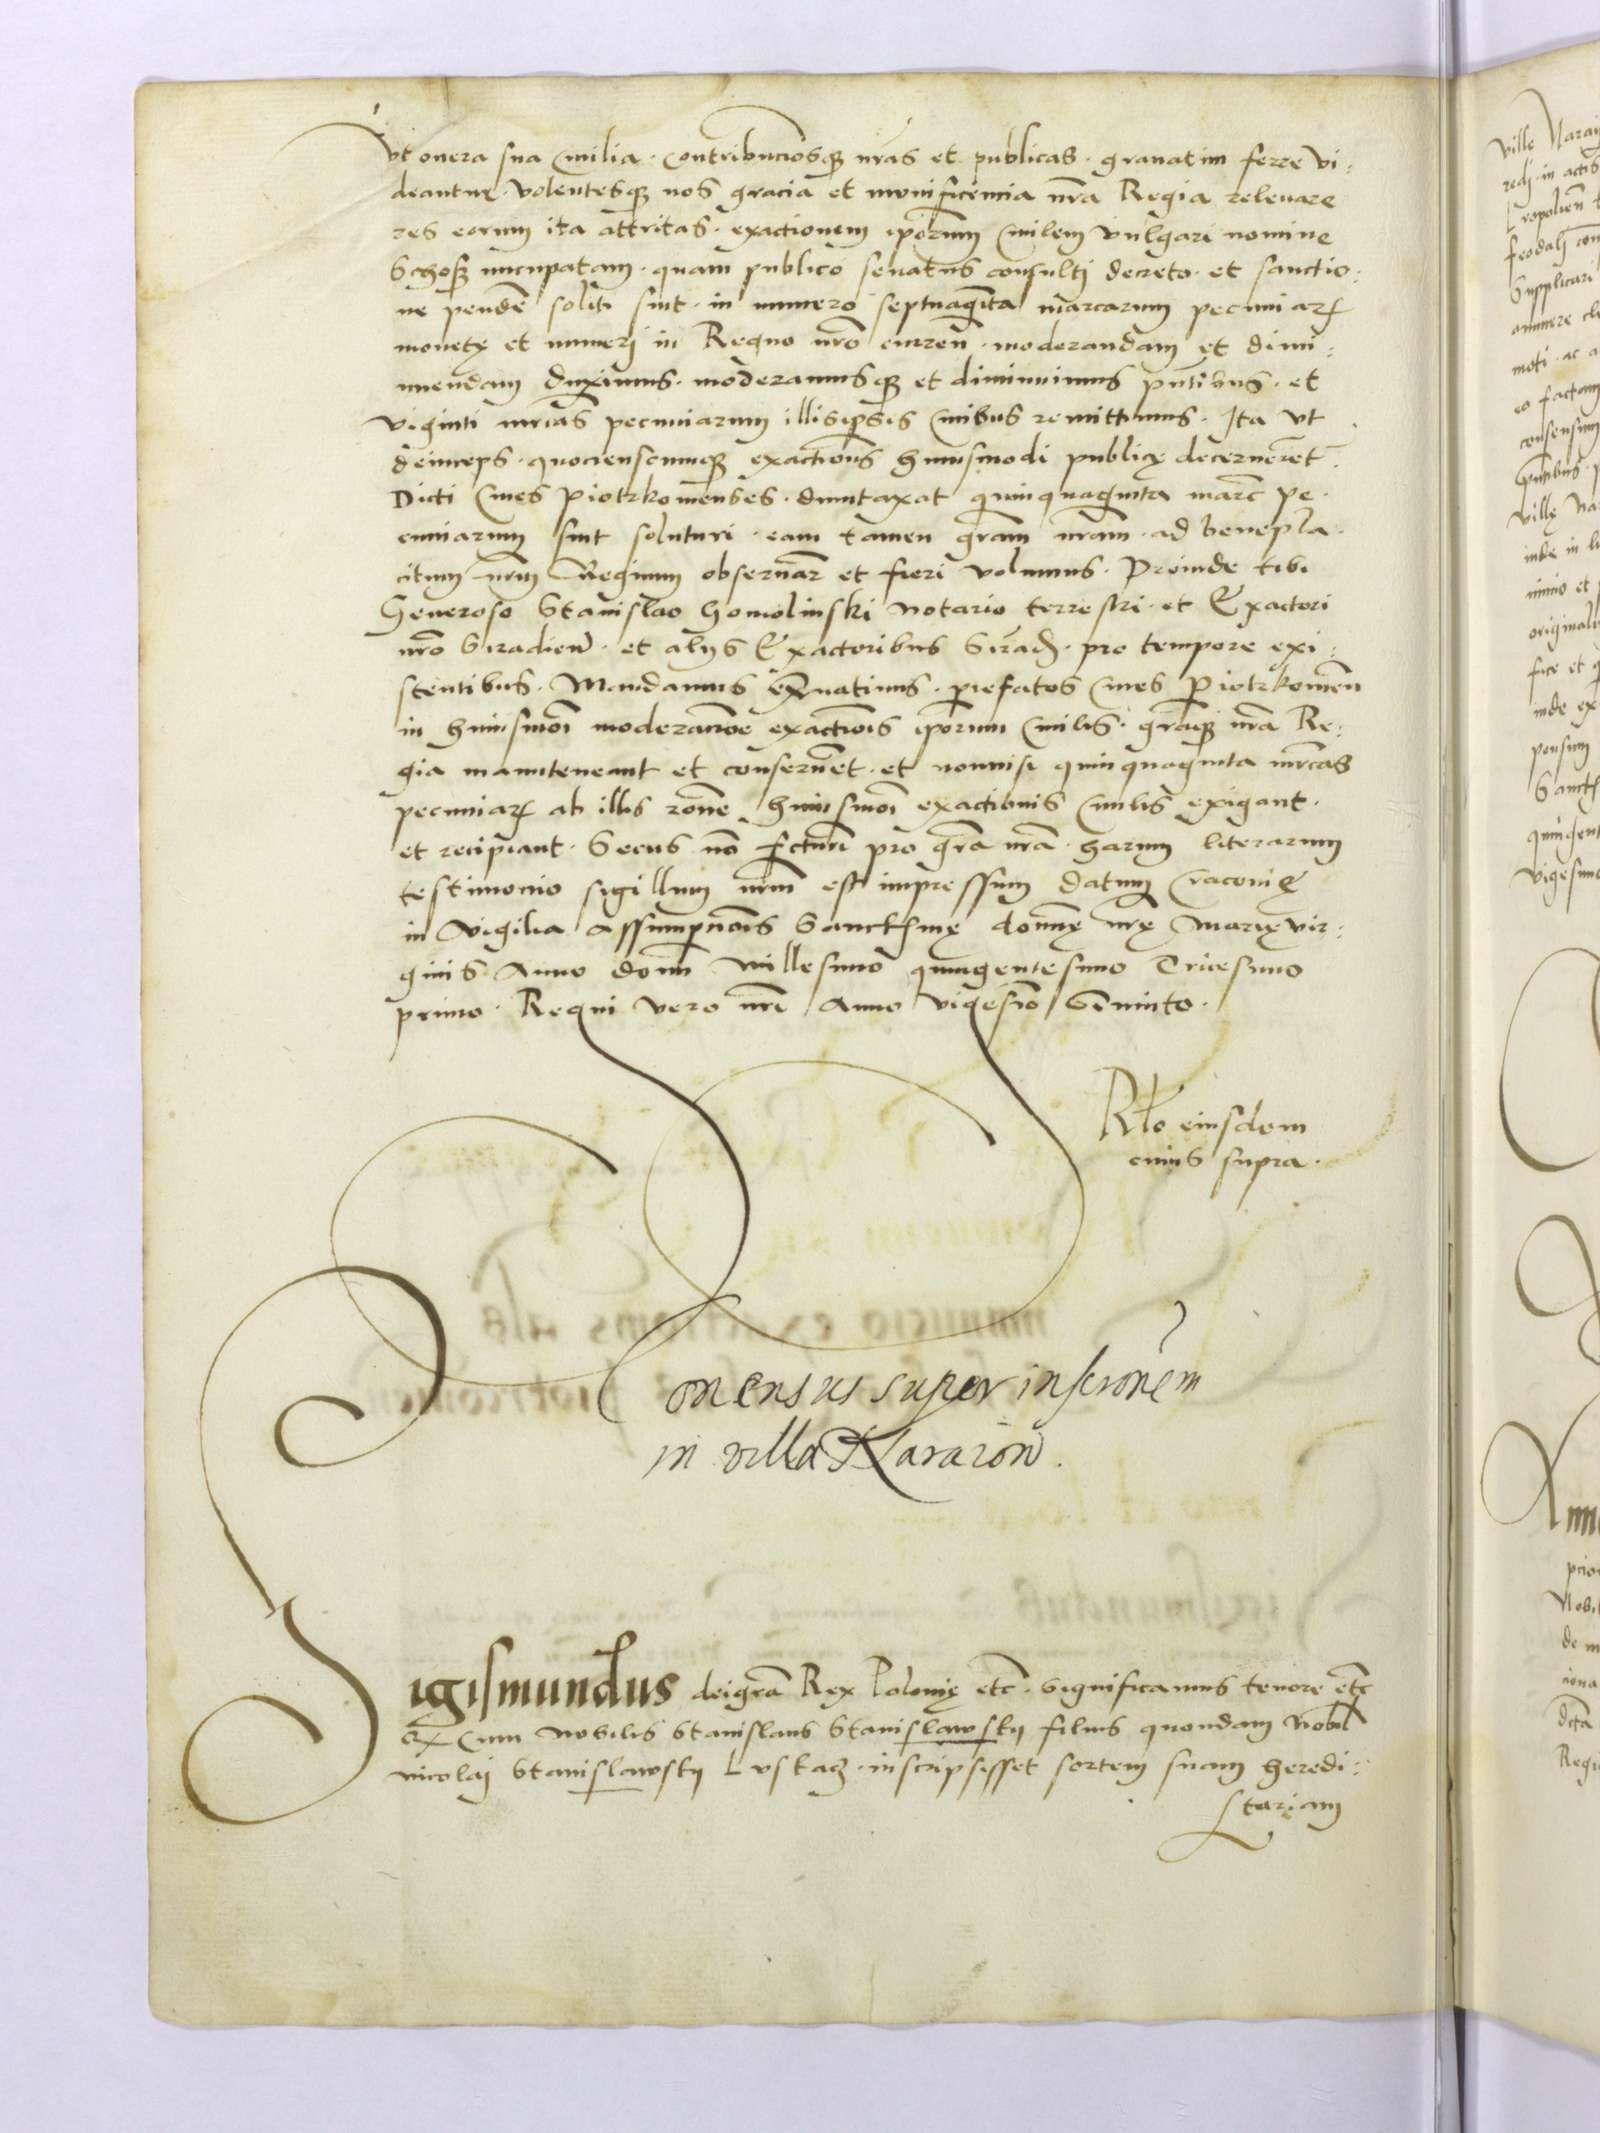 vt onera sua Civilia. Contribuciosq̃ nr̃as et publicas. gravatim ferre vi:
deantur. volentesq̃ nos gracia et mvnificencia nr̃a Regia relevare
res eorum ita attritas. exactionem ip̃orum Civilem vulgari nomine
Schosz nuncupatam. quam publico senatus consulti decreto. et sanctio:
ne pende soliti sint. in numero septuaginta marcarum pecuniarꝝ
monetę et numeri in Regno nr̃o curreñ. moderandam et dimi:
nuendam duximus. moderamusq̃ et diminuimus pñtibus. et
viginti mrcas pecuniarum illis ip̃sis Civibus remittimus. Ita vt
deinceps. quocienscunq̃ exactionis huiusmodi publicę decerneret̃.
Dicti Cives Piotrkovienses. duntaxat quinquaginta marc̃ pe.
cuniarum sint soluturi. eam tamen gr̃am nr̃am. ad benepla.
citum nr̃m Regium observar̃ et fieri volumus. Proinde tibi
Generoso Stanislao Gomolinski Notario terrestri. et Exactori
nr̃o Siradieñ. et alijs Exactoribus Sirad. pro tempore exi:
stentibus. Mandamus prefatos Cives Piotrkovieñ
in huiusmõi moderac̃ione exactiõis ip̃orum Civilis. gr̃aq̃ nr̃a Re:
gia manuteneant et conservet. et nonnisi quinquaginta mrcas
pecuniarꝝ ab illis rõne huiusmõi exactionis Civilis exigant.
et recipiant. Secus nõ facturi pro gr̃a nr̃a. harum literarum
testimonio sigillum nr̃m est impressum datum Cracovię
in Vigilia Assumpc̃ionis Sanctissimę domnę nr̃ę Marię vir:
ginis Anno domi Millesimo quingentesimo Tricesimo
primo. Regni vero nr̃i Anno vigesio Quinto.
Rlo eiusdem
cuius supra.
Consensus super inscrionem
in villa Naraion.
Sigismundus dei gr̃a Rex Polonię etc̃. Significamus tenore etc̃
Cum Nobilis Stanislaus Stanislawskij filius quondam Nobil
Nicolaj Stanislawskij Luskacz. inscripsisset sortem suam heredi:
tariam
ville
redi in actis
feodalj
Supplicari
moti. ac
eo factam
consensum
villę Na
originali
inde ex
Sanct
quingent
vigesimo
Nobil
Regi